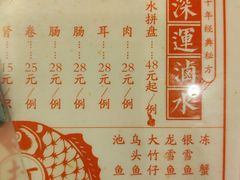 十年经典秘方
深運滷水
水拼盘 48元起/例
肉 28元/例
耳 28元/例
肠 28元/例
肠 28元/例
卷 25元/例
肾 15元/只
冻蟹
银雪鱼
龙雪鱼
大竹仔
乌头鱼
池鱼